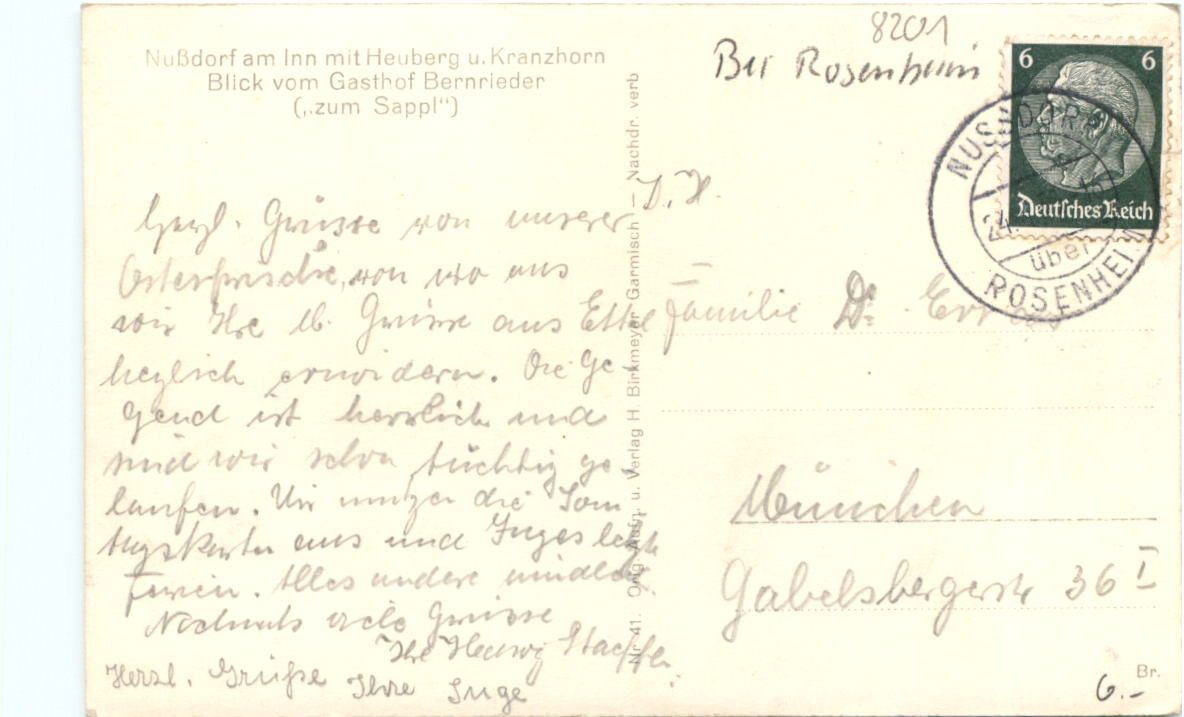 Nußdorf am Inn mit Heuberg u. Kranzhorn
Blick vom Gasthof Bernrieder
(„zum Sappl“)
8201
Bei Rosenheim
6 6
Deutsches Reich
NUSSDORF
über
ROSENHEIM
Nr. 41. Orig. Aufn. u. Verlag H. Birkmeyer Garmisch — Nachdr. verb
Grüsse von unserer
von wo aus
wir Ihre lb. Grüsse aus
herzlich erwidern. Die Ge
gend ist herrlich und
sind wir schon tüchtig ge
laufen. Wir nutzen die Sonn
tagskarten aus und Inges letzte
Ferien. Alles andere mündlich
Nochmals viele Grüsse
Ihre Hedwig
Herzl. Grüße Ihre Inge
Familie Dr.
München
Gabelsbergerstr 36 I
Br.
6.-